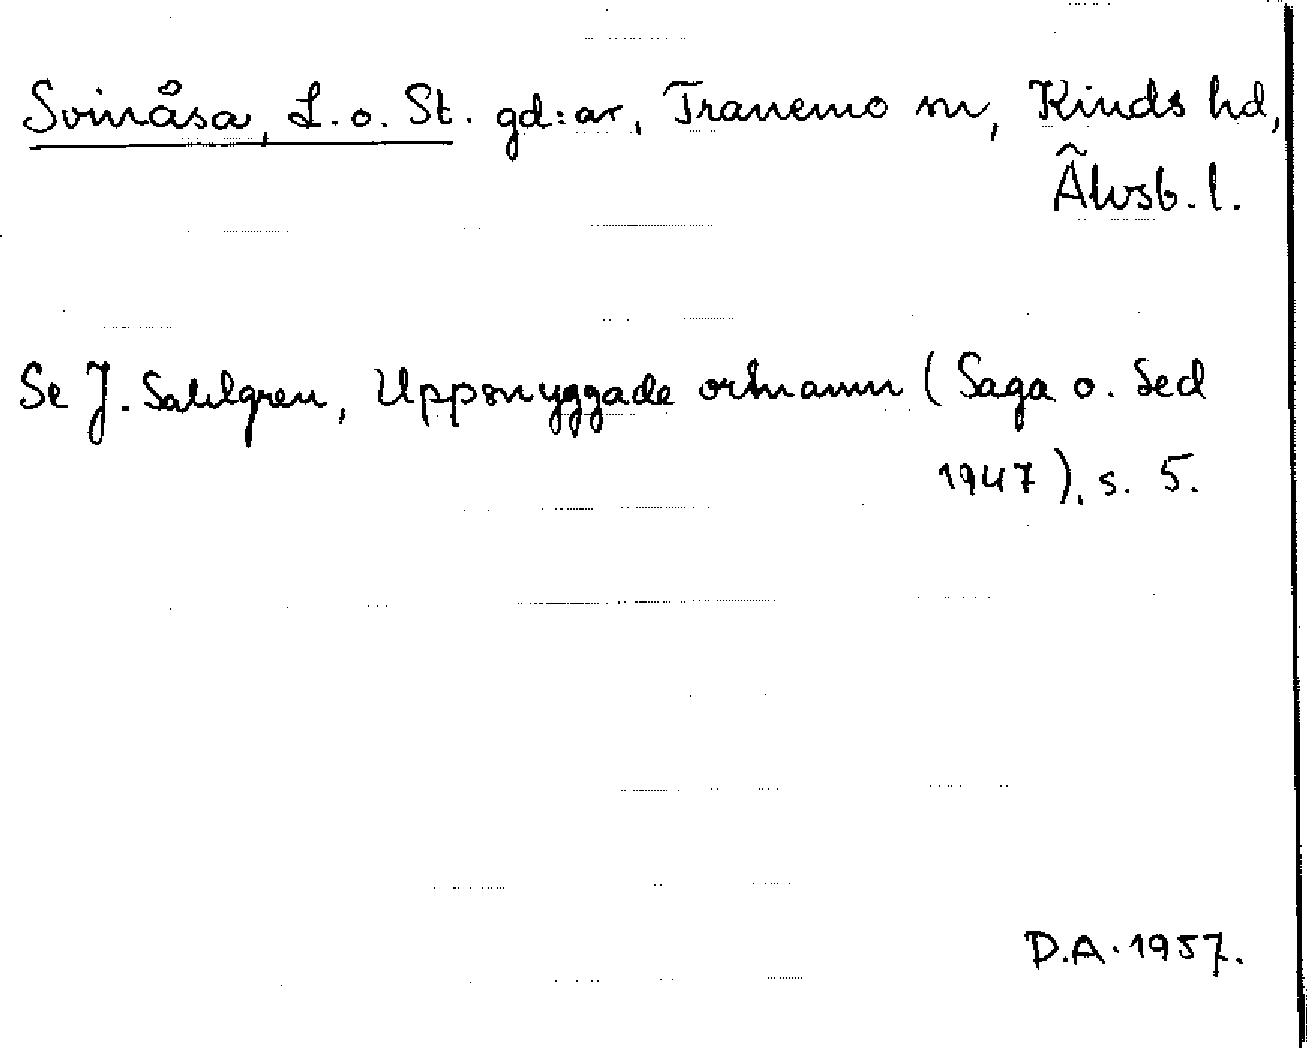 Svinåsa, L. o. St. gd:ar, Tranemo sn, Kinds hd,
Älvsb. l.
Se J. Sahlgren, Uppsnyggade ortnamn (Saga o. Sed
1947), s. 5.
D.A. 1957.